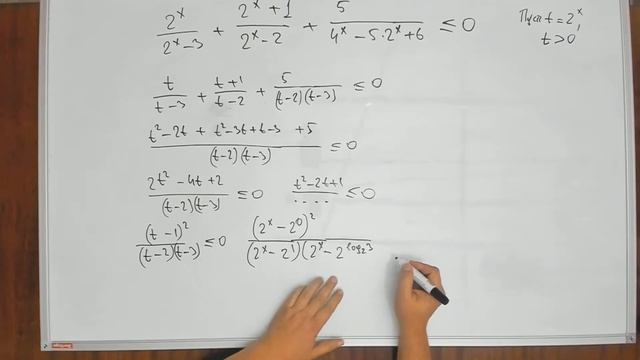 2^x/(2^x-3) + (2^x+1)/(2^x-2) + 5/(4^x-5·2^x+6) ≤ 0
Пусть t=2^x,
t>0
t/(t-3) + (t+1)/(t-2) + 5/((t-2)(t-3)) ≤ 0
(t²-2t + t²-3t+t-3 +5)/((t-2)(t-3)) ≤ 0
(2t²-4t+2)/((t-2)(t-3)) ≤ 0 (t²-2t+1)/.... ≤ 0
(t-1)²/((t-2)(t-3)) ≤ 0 (2^x-2^0)²/((2^x-2^1)(2^x-2^log₂3